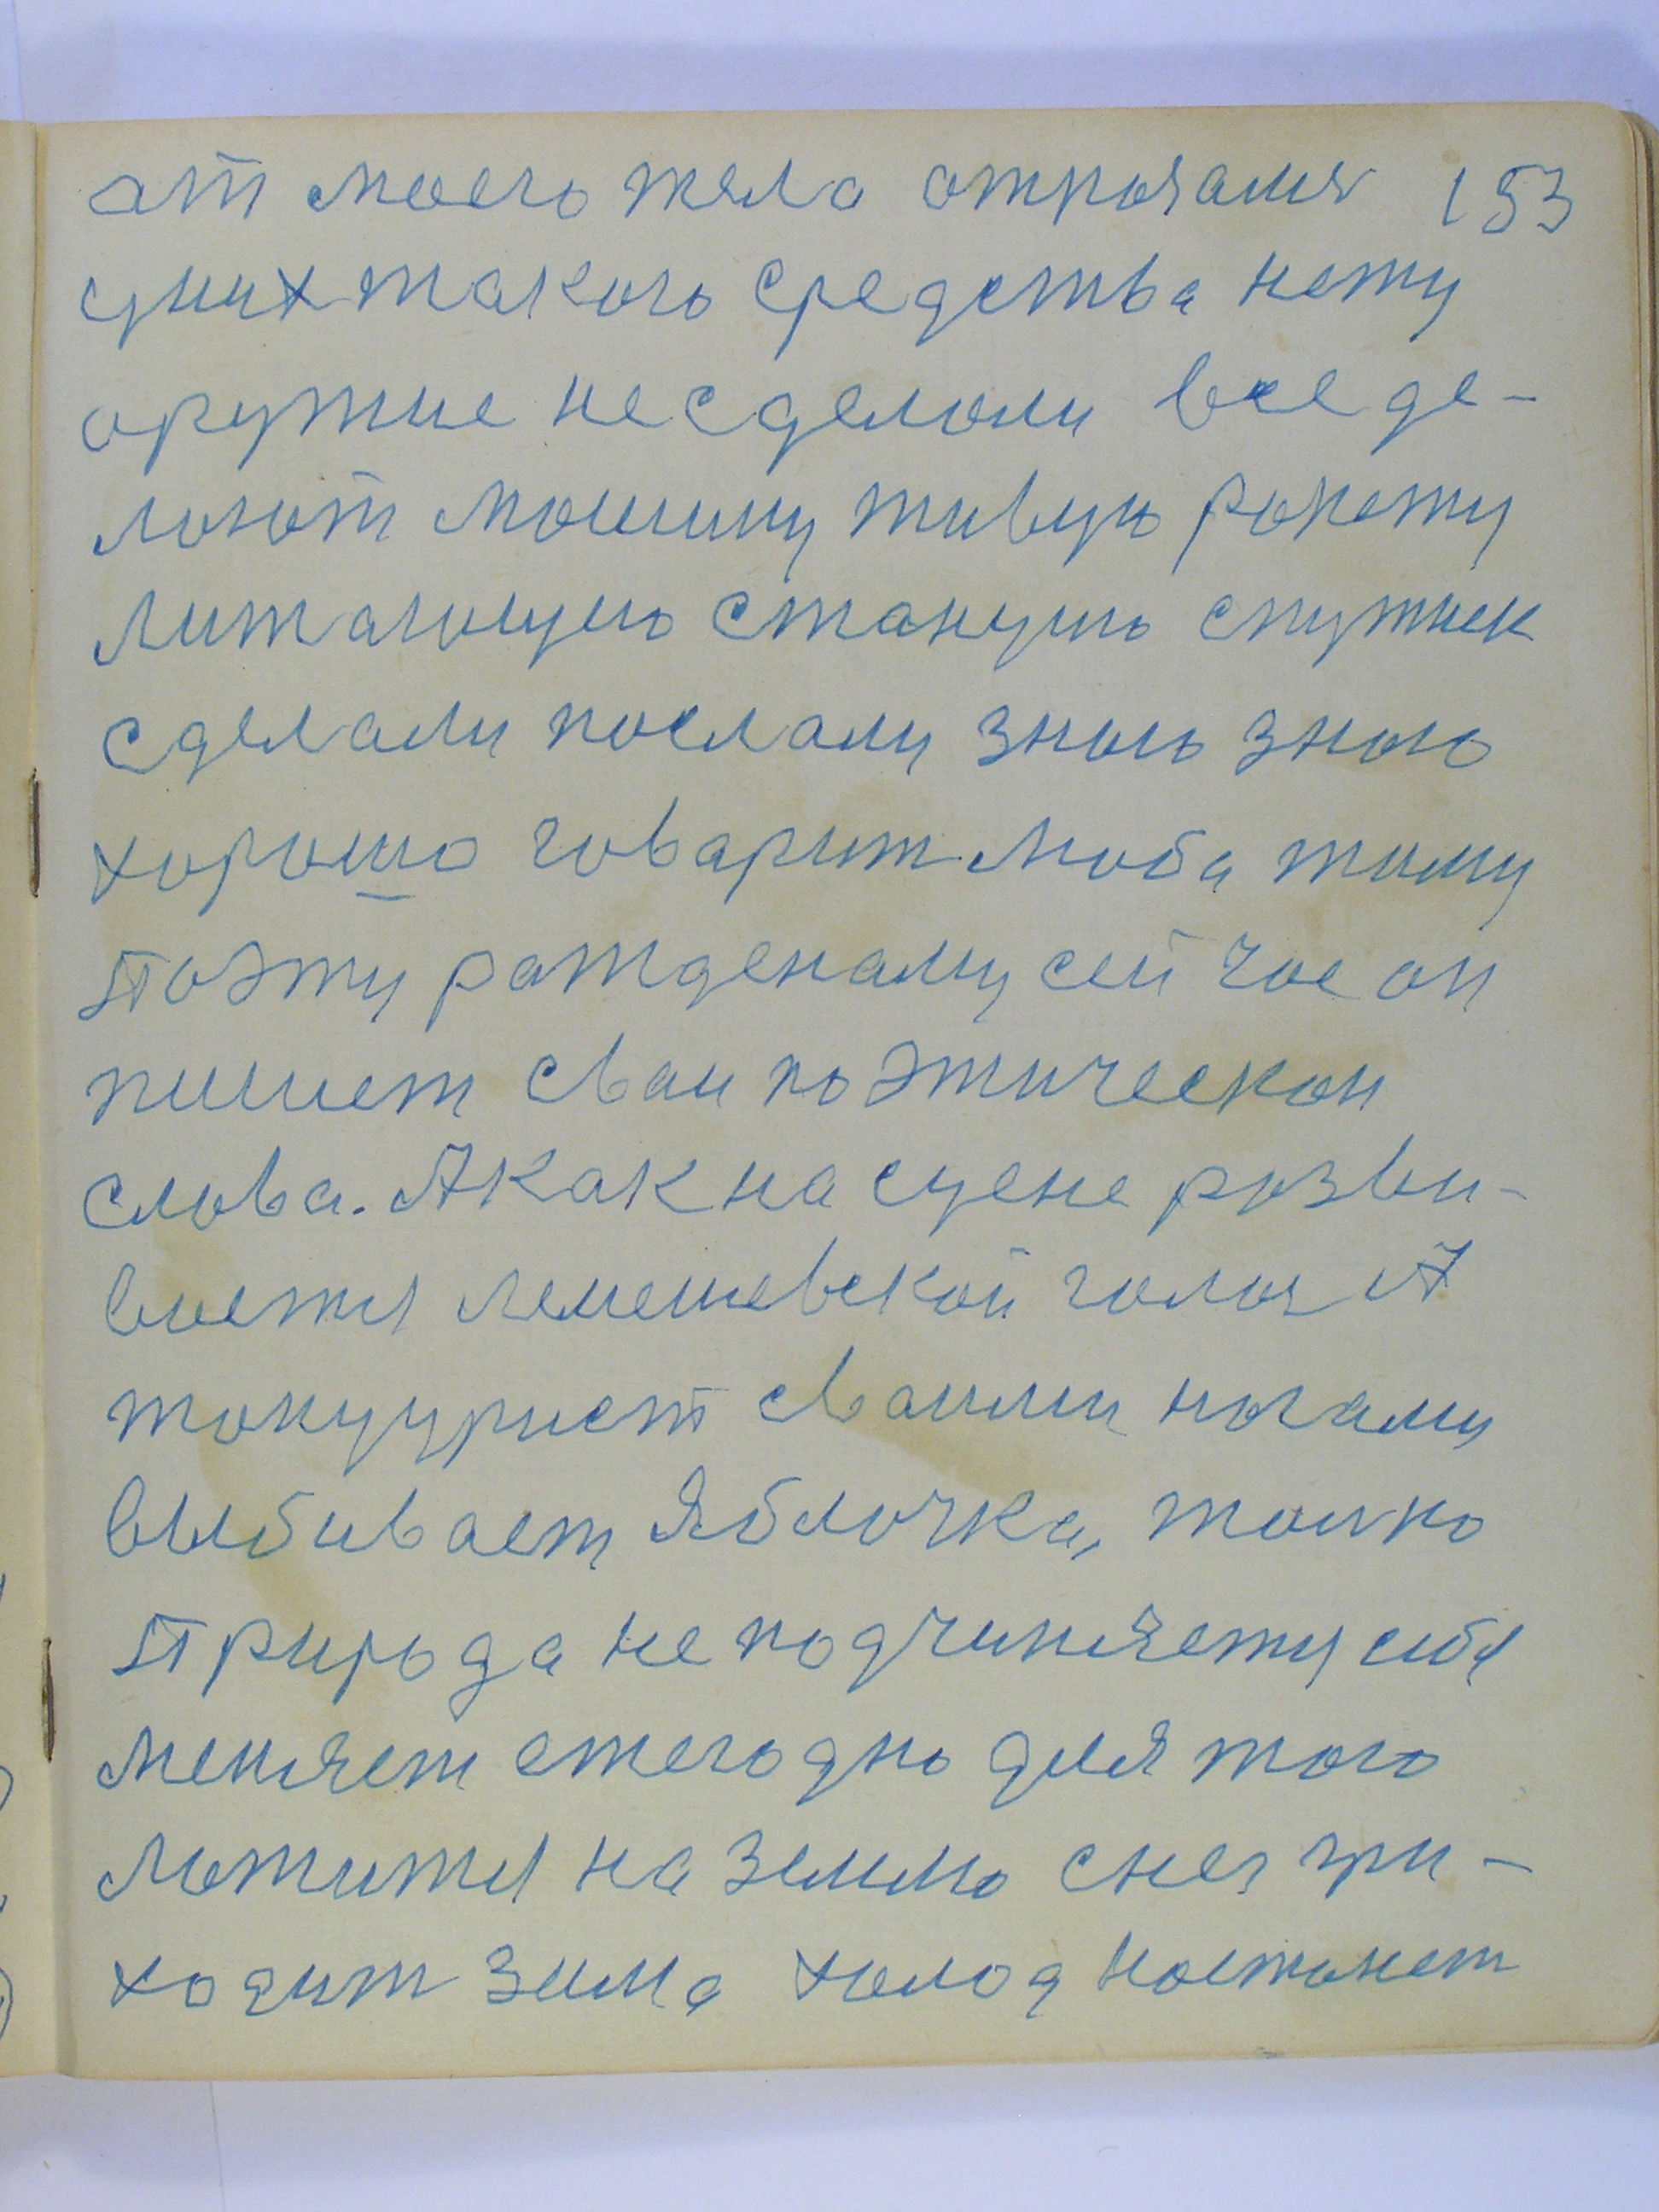 ат моего тяла атрозамя 153
уних такого средства нету
оружие не сделоли все де-
лоют мошину живую рокету
литающую станцую спутник
сделали послали знаю знаю
хорошо говарит люба тому
поэту рожденаму сейчас он
пишет сваи поэтическои
слова. А как на сцене розви-
воетя лемешевской голос А
танцурист сваими ногами
выбивает яблочка, толко
природа не подчиняетя себя
меняет ежегодно для того
ложитя на землю снег при-
ходит зима холод ностанет